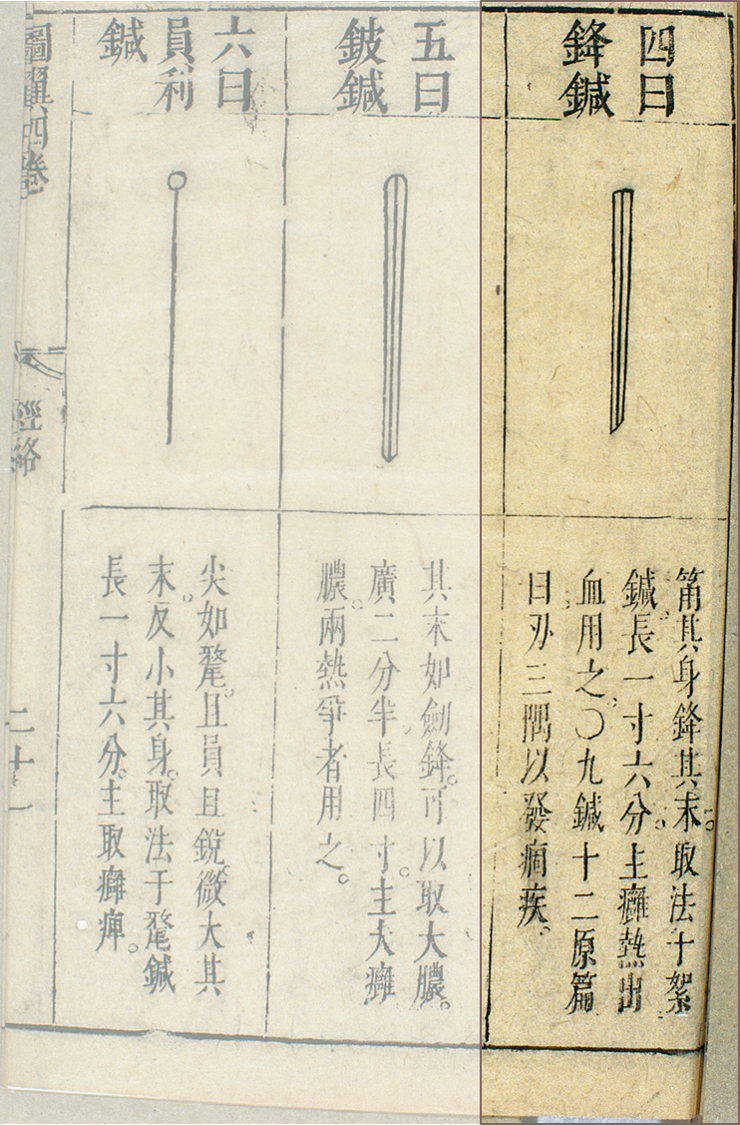 四曰
鋒鍼
筩其身鋒其末。取法于絮
鍼。長一寸六分。主癰熱出
血用之。〇九鍼十二原篇
曰刃三隅以發痼疾。
五曰
鈹鍼
其末如劍鋒。可以取大膿。
廣二分半。長四寸。主大癰
膿。兩熱爭者用之。
六曰
員利
鍼
尖如氂。且員且銳微大其
末。反小其身。取法于氂鍼
長一寸六分。主取癰痺。
圖翼四卷
經絡
二十一